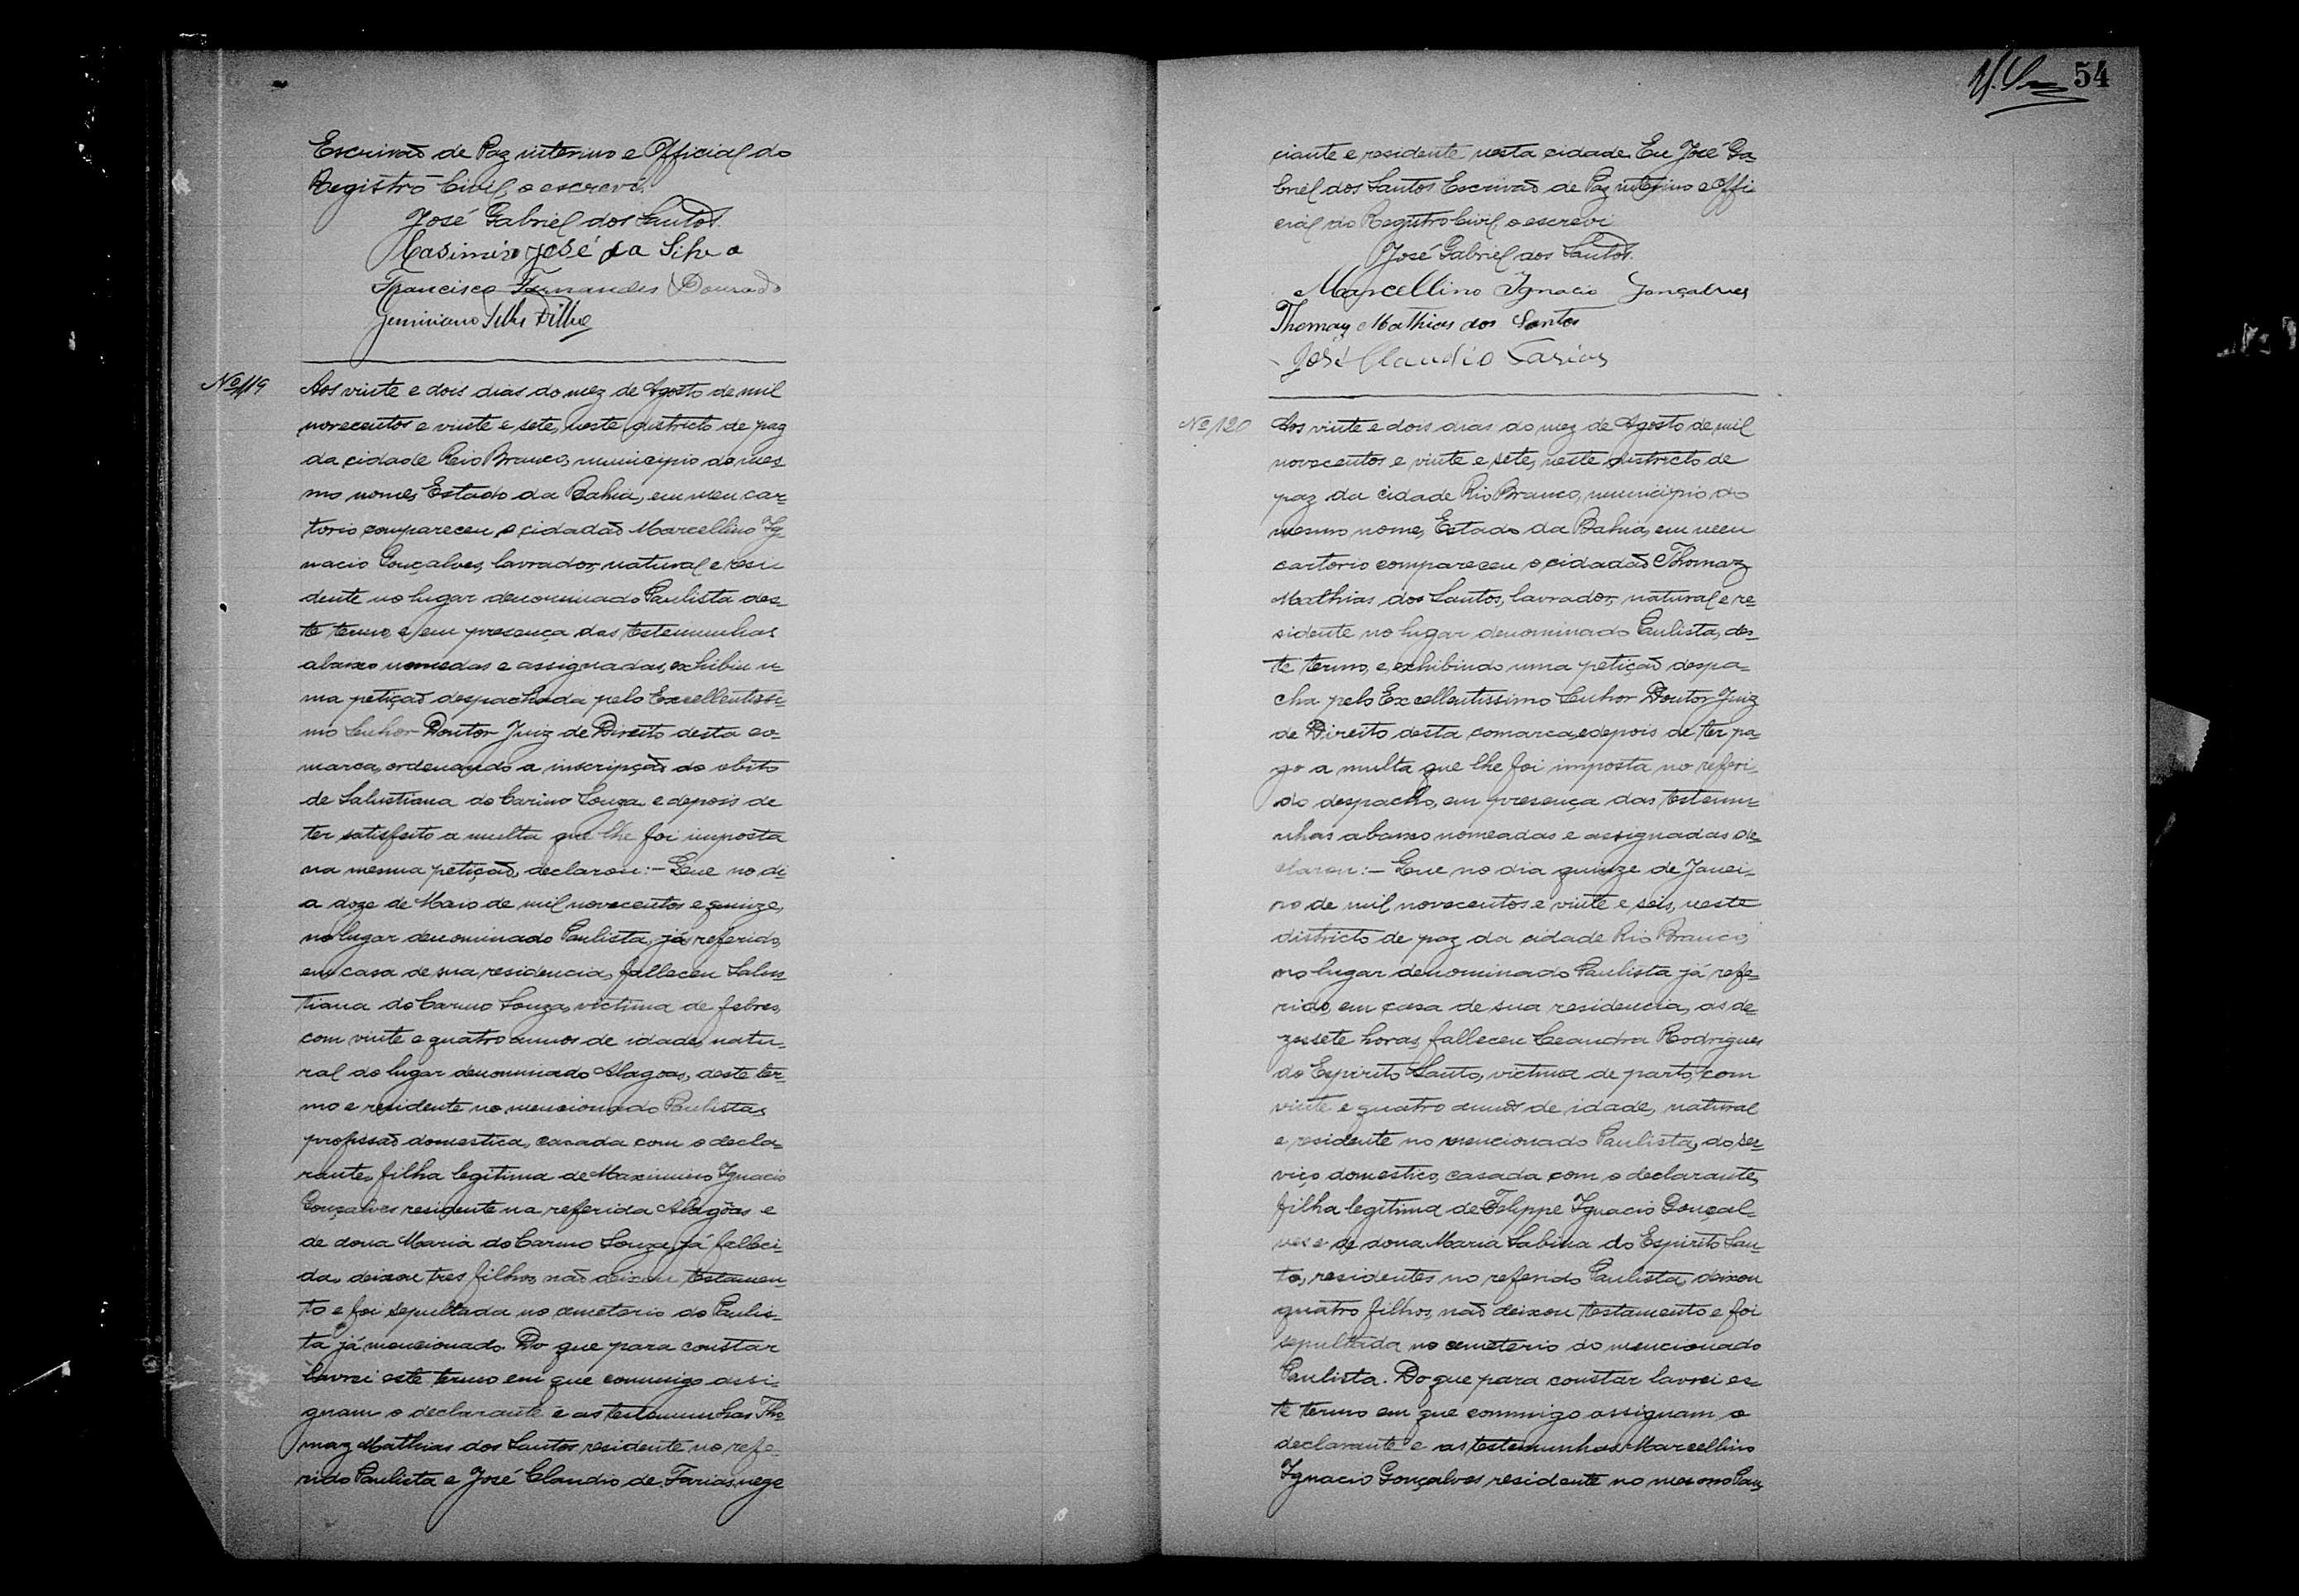 Escrivaõ de Paz interino e Official do
Registro Civil o escrevi.
José Gabriel dos Santos.
Casimiro José da Silva
Francisco Fernandes Dourado
Geminiano
Nº 119
Aos vinte e dois dias do mez de Agosto de mil
novecentos e vinte e sete, neste districto de paz
da cidade Rio Branco, municipio do mes-
mo nome, Estado da Bahia, em meu car-
torio compareceu o cidadaõ Marcellino Ig-
nacio Gonçalves, lavrador, natural e resi-
dente no lugar denominado Paulista des-
te termo, e em presença das testemunhas
abaixo nomedas e assignadas, exhibiu u-
ma petiçaõ despachada pelo Excellentissi-
mo Senhor Doutor Juiz de Direito desta co-
marca, ordenando a inscripçaõ do obito
de Salustiana do Carmo Souza e depois de
ter satisfeito a multa que lhe foi imposta
na mesma petiçaõ, declarou:- Que no di-
a doze de Maio de mil novecentos e quinze,
no lugar denominado Paulista, já referido,
em casa de sua residencia, falleceu Salus-
tiana do Carmo Souza, victima de febres,
com vinte e quatro annos de idade, natu-
ral do lugar denominado Alagoas, deste ter-
mo e residente no mencionado Paulista,
profissaõ domestica, casada com o decla-
rante, filha legitima de Maximino Ignacio
Gonçalves residente na referida Alagôas e
de dona Maria do Carmo Souza, já falleci-
da, deixou tres filhos, naõ deixou testamen-
to e foi sepultada no cemeterio do Paulis-
ta já mencionado. Do que para constar
lavrei este termo em que commigo assi-
gnam o declarante e as testemunhas Tho-
maz Mathias dos Santos residente no refe-
rido Paulista e José Claudio de Farias, nego
54
ciante e residente nesta cidade. Eu José Ga-
briel dos Santos Escrivaõ de Paz interino e Offi-
cial do Registro Civil, o escrevi
José Gabriel dos Santos.
Marcellino Ignacio Gonçalves
Thomaz Mathias dos Santos
José Claudio Farias
Nº 120
Aos vinte e dois dias do mez de Agosto de mil
novecentos e vinte e sete, neste districto de
paz da cidade Rio Branco, municipio do
mesmo nome, Estado da Bahia, em meu
cartorio compareceu o cidadaõ Thomaz
Mathias dos Santos, lavrador, natural e re-
sidente no lugar denominado Paulista, des-
te termo, e, exhibindo uma petiçaõ despa-
cha pelo Excellentissimo Senhor Doutor Juiz
de Direito desta comarca, e depois de ter pa-
go a multa que lhe foi imposta no referi-
do despacho, em presença das testemu-
nhas abaixo nomeadas e assignadas de-
clarou:- Que no dia quinze de Janei-
ro de mil novecentos e vinte e seis, neste
districto de paz da cidade Rio Branco,
no lugar denominado Paulista já refe-
rido, em casa de sua residencia, as de-
zesete horas, falleceu Leandra Rodrigues
do Espirito Santo, victima de parto, com
vinte e quatro annos de idade, natural
e residente no mencionado Paulista, do ser-
viço domestico, casada com o declarante,
filha legitima de Felippe Ignacio Gonçal-
ves e de dona Maria Sabina do Espirito San-
to, residentes no referido Paulista, deixou
quatro filhos, naõ deixou testamento e foi
sepultada no cemeterio do mencionado
Paulista. Do que para constar lavrei es-
te termo em que commigo assignam o
declarante e as testemunhas Marcellino
Ignacio Gonçalves residente no mesmo Pau-